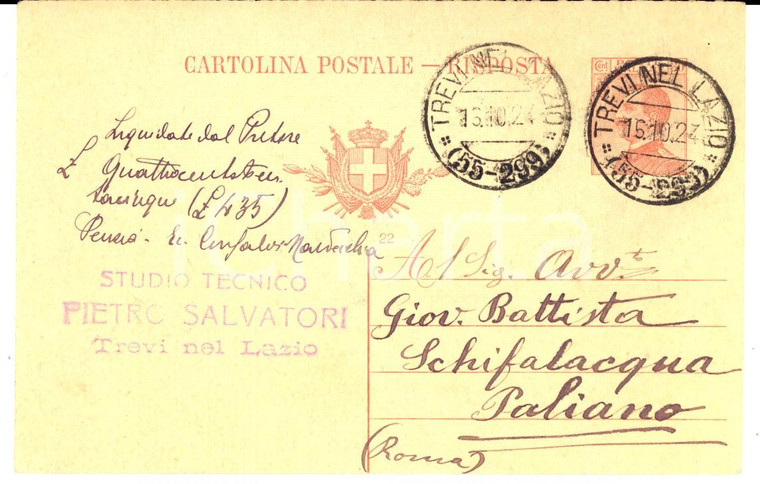 CARTOLINA POSTALE — RISPOSTA
TREVI NEL LAZIO
15.10.24
(55-299)
TREVI NEL LAZIO
15.10.24
(55-299)
Liquidate dal Pretore
£ Quattrocentotren
tacinque (£ 435)
22
STUDIO TECNICO
PIETRO SALVATORI
Trevi nel Lazio
Al Sig. Avv.to
Giov. Battista
Schifalacqua
Paliano
(Roma)